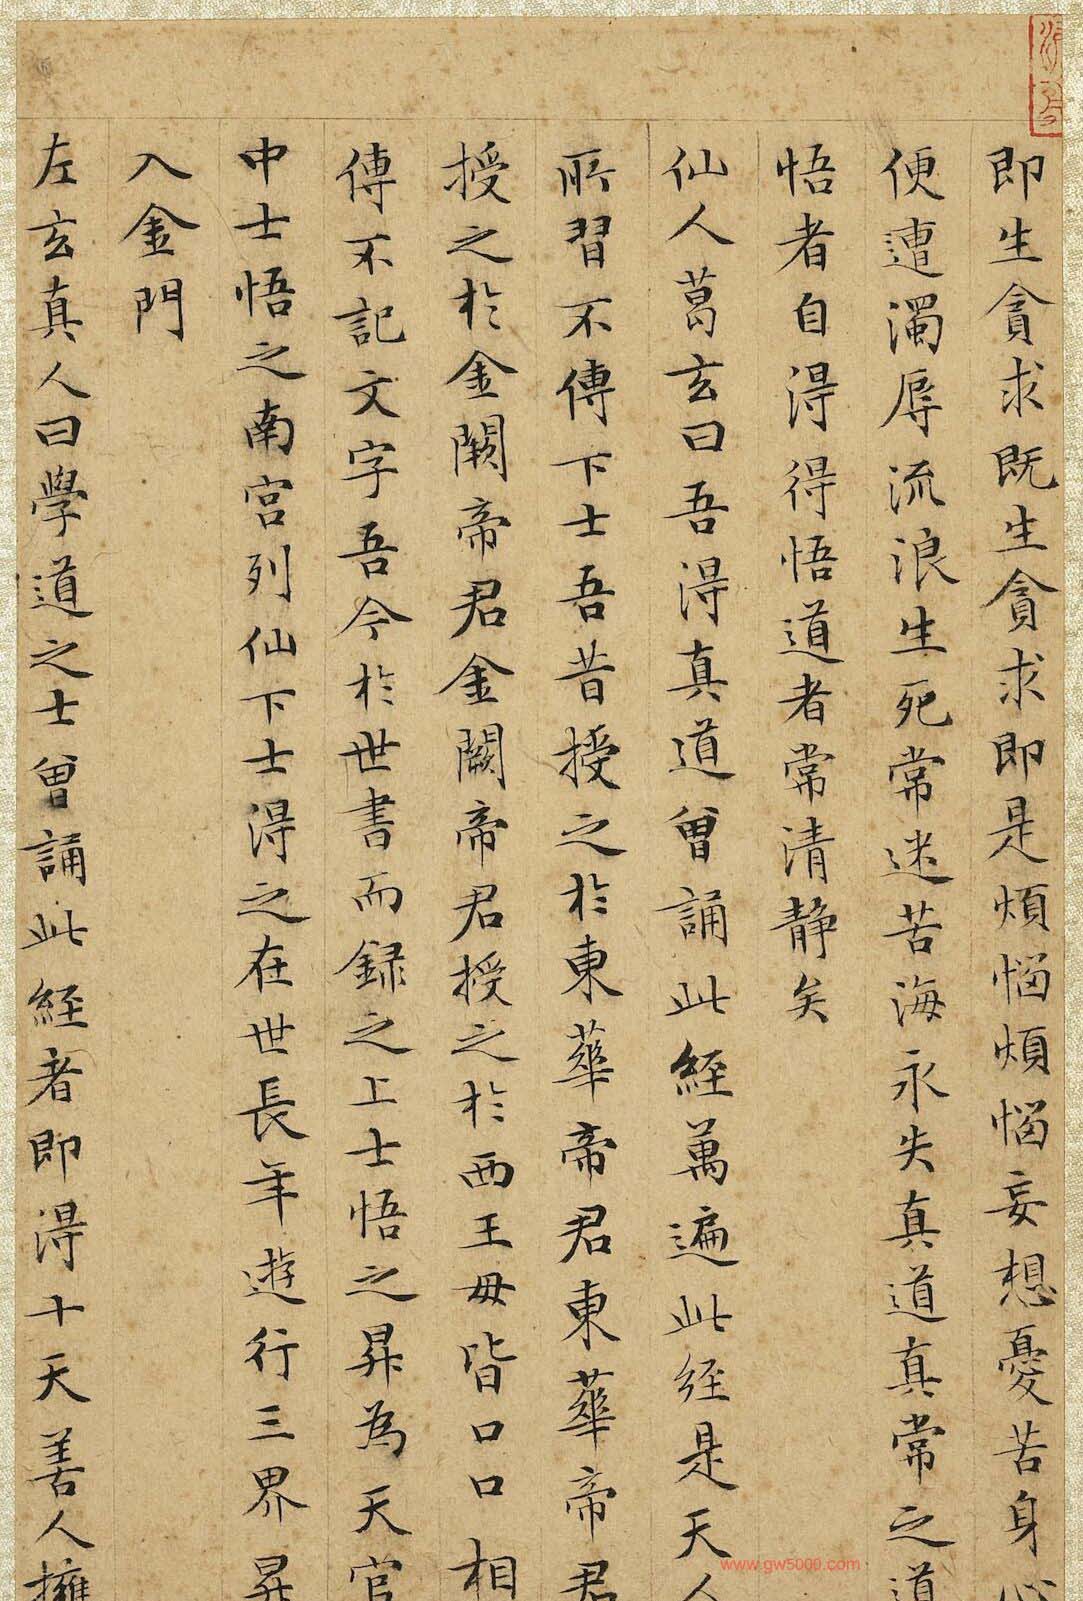 即生貪求既生貪求即是煩惱煩惱妄想憂苦身心
便遭濁辱流浪生死常迷苦海永失真道真常之道
悟者自得得悟道者常清靜矣
仙人葛玄曰吾得真道曾誦此經萬遍此經是天人
所習不傳下士吾昔授之於東華帝君東華帝君
授之於金闕帝君金闕帝君授之於西王母皆口口相
傳不記文字吾今於世書而録之上士悟之昇為天官
中士悟之南宮列仙下士得之在世長年遊行三界昇
入金門
左玄真人曰學道之士曾誦此經者即得十天善人擁
www.gw5000.com